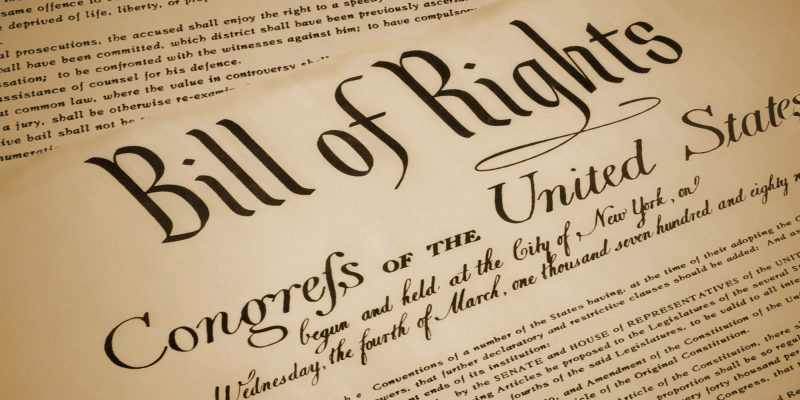 same offence to
be deprived of life, liberty, or prope
al prosecutions, the accused shall enjoy the right to a speedy
hall have been committed, which district shall have been previously ascertai
sation; to be confronted with the witnesses against him; to have compulsory
ssistance of counsel for his defence.
at common law, where the value in controversy shall
a jury, shall be otherwise re-exami
ive bail shall not be
numerati
Bill of Rights
Congreſs OF THE United States
begun and held at the City of New York, on
Wednesday, the fourth of March, one thousand seven hundred and eighty n
the Conventions of a number of the States having, at the time of their adopting the C
owers, that further declaratory and restrictive clauses should be added: And as
ent ends of its institution:
by the SENATE and HOUSE of REPRESENTATIVES of the UNITED
ing Articles be proposed to the Legislatures of the several S
fourths of the said Legislatures, to be valid to all inte
O, and Amendment of the Constitution of the Un
rticle of the Original Constitution.
rticle of the Constitution, there s
proportion shall be so regul
very forty thousand per
Congress, that